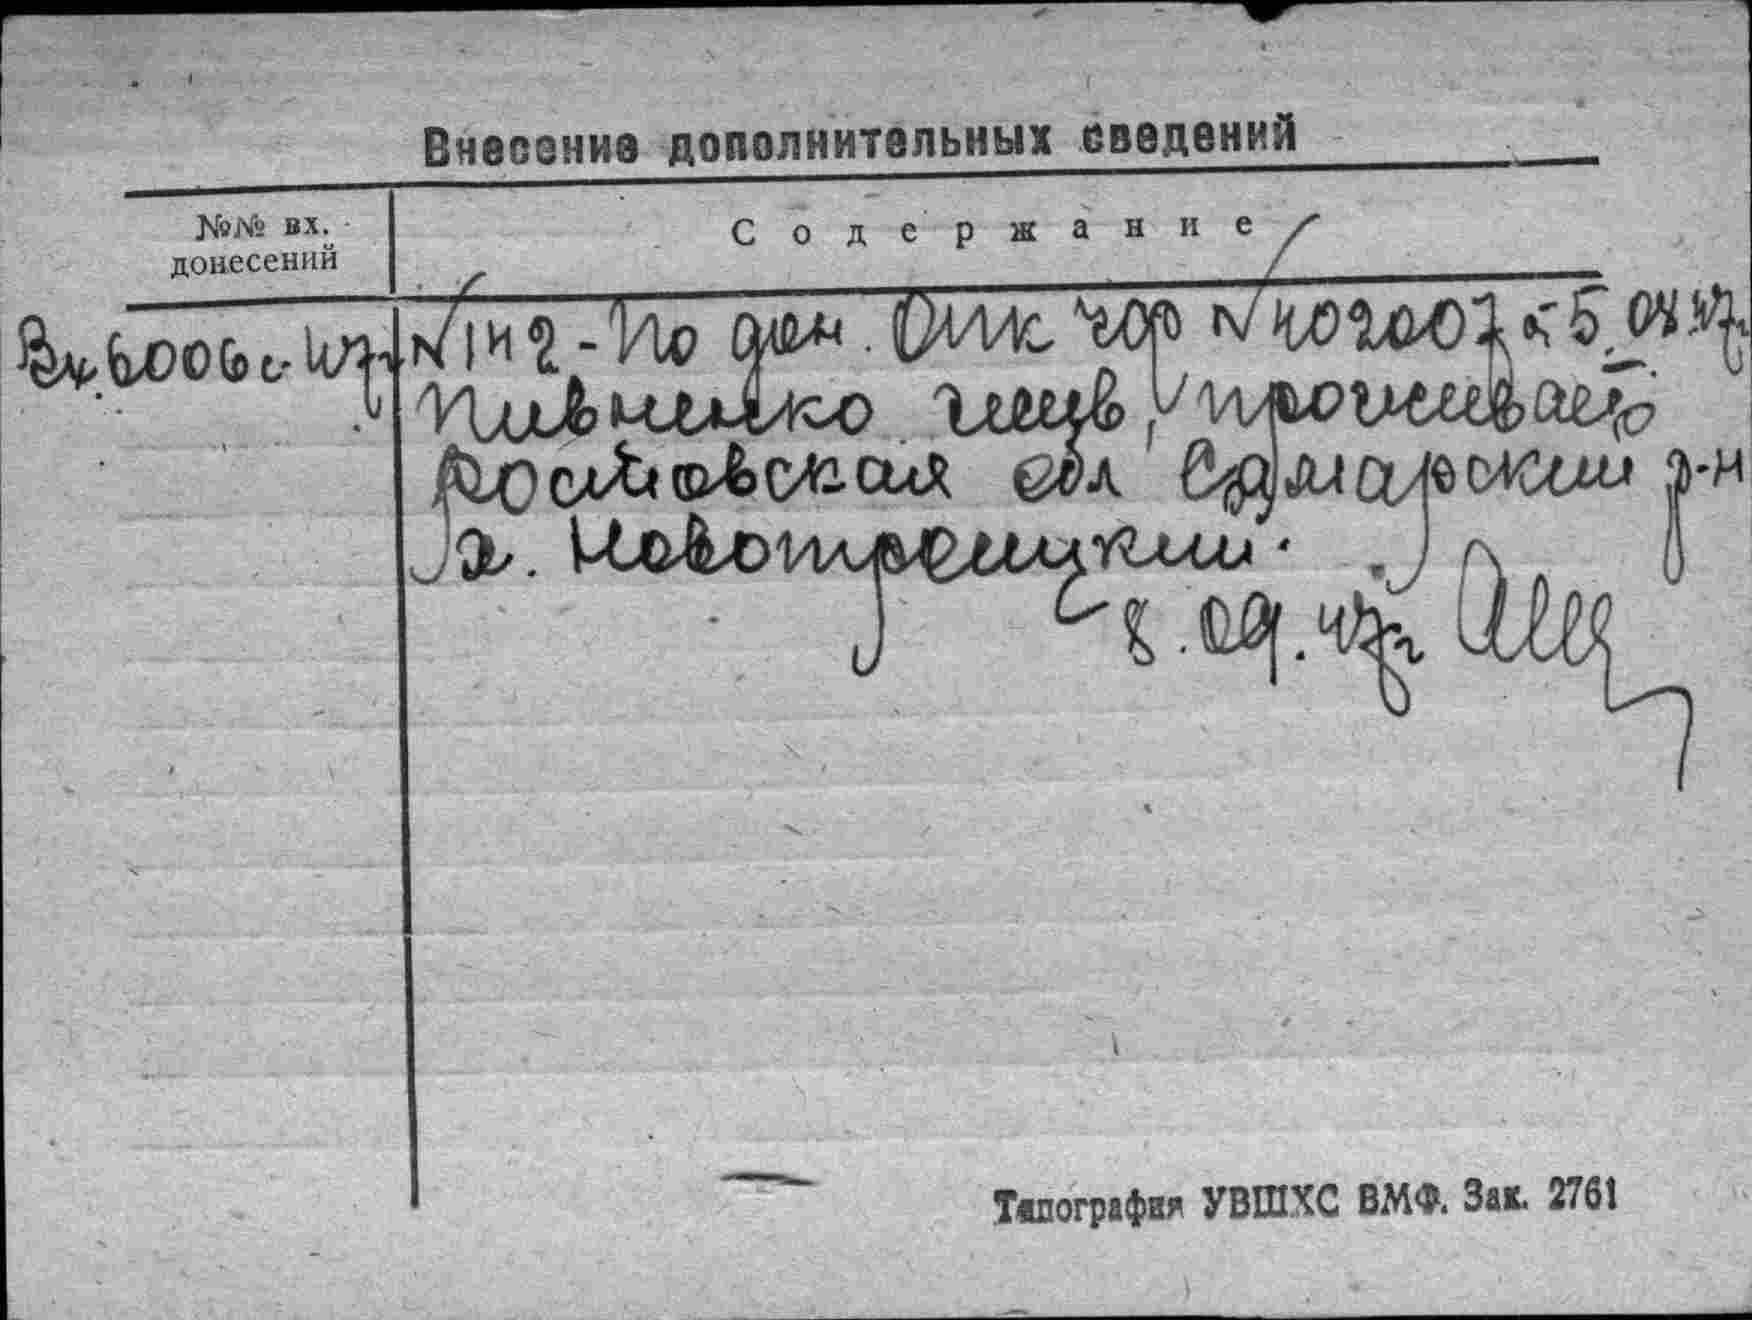 Внесение дополнительных сведений
№№ вх. донесений
Содержание
Вх. 6006с-47г
№142 - По дон. ОПК ЧФ №402007 с 5.04.47г.
Пивненко жив, проживает
Ростовская обл Самарский р-н
х. Новотроицкий.
8.09.47г
Типография УВШХС ВМФ. Зак. 2761